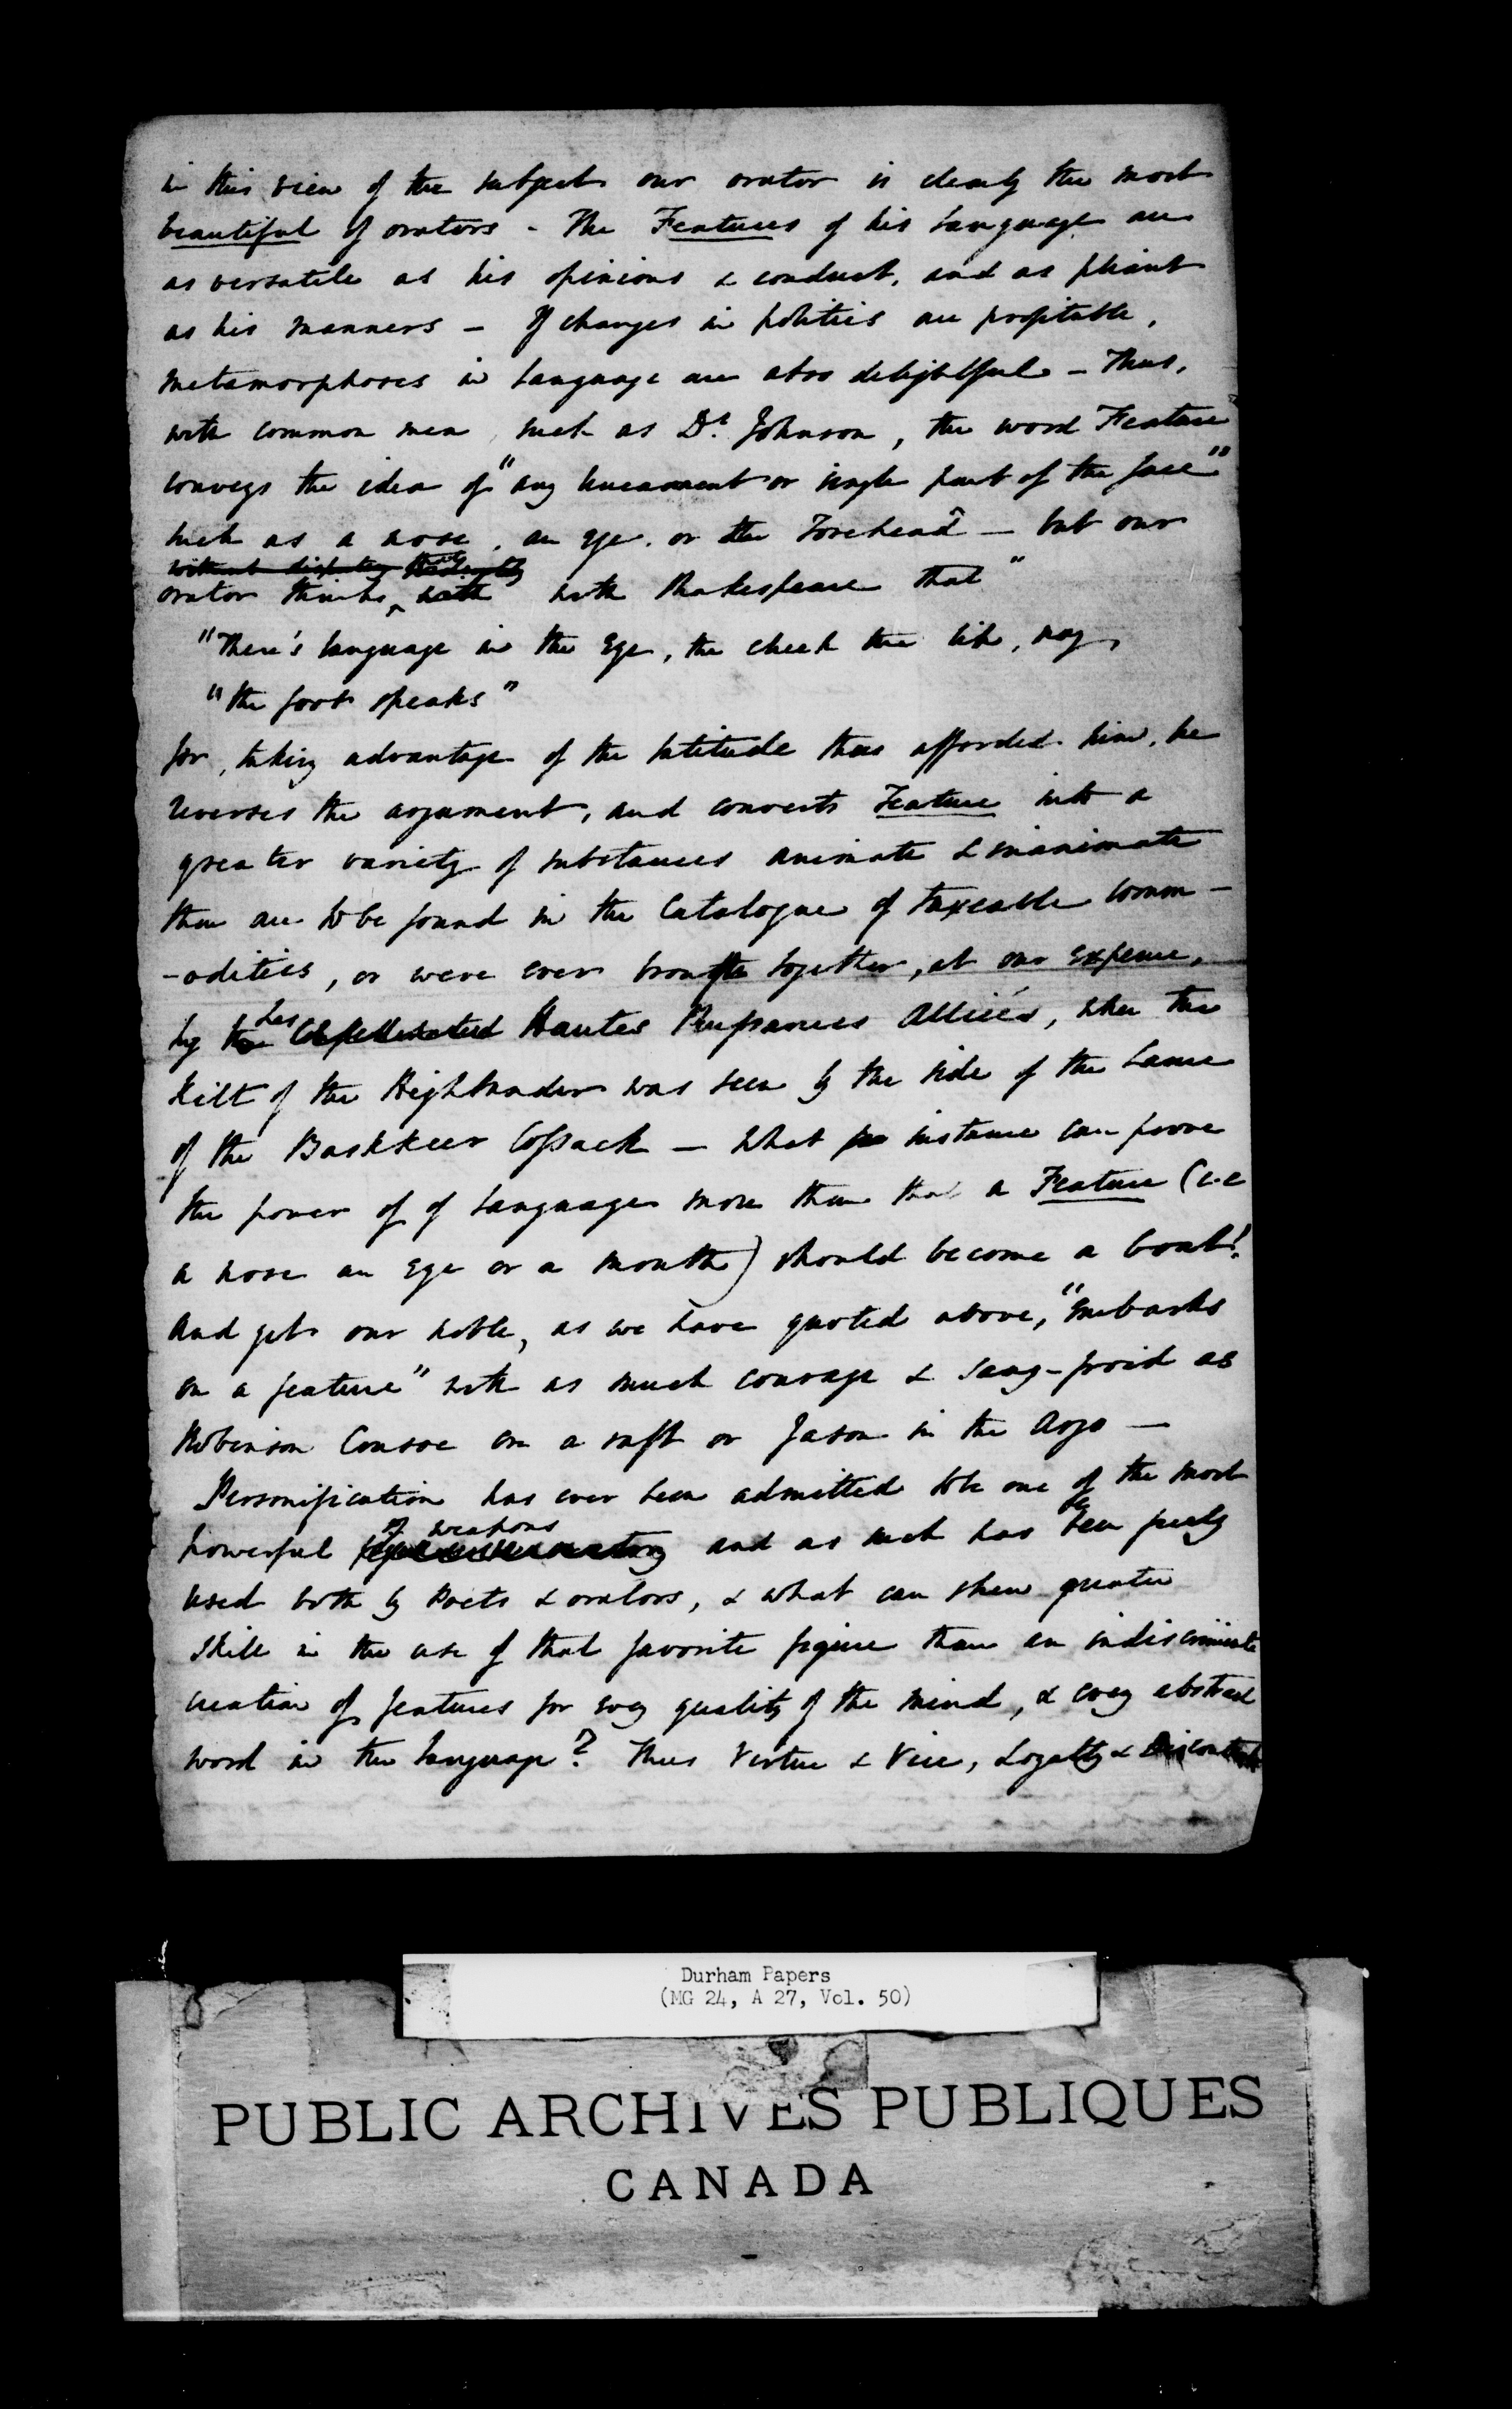 in this view of the subject our orator is clearly the most
beautiful of orators - The Features of his Language are
as versatile as his opinions & conduct, and as pliant
as his manners - If changes in politics are profitable,
metamorphoses in Language are also delightful - Thus,
with common men, such as Dr. Johnson, the word Feature
conveys the idea of "any lineament or single part of the face"
such as a nose, an eye, or the Forehead - but our
without disputing
orator thinks with with Shakespeare that "
"There's language in the Eye, the cheek the lip, nay,
"the foot speaks"
for, taking advantage of the latitude thus afforded him, he
reverses the argument, and converts Feature into a
greater variety of substances animate & inanimate
than are to be found in the Catalogue of taxeable Comm-
-odities, or were ever brought together, at our expence,
by the Les Hautes Puissances Alliées, when the
kilt of the Highlander was seen by the side of the Lance
of the Bashkeer Cossack - What instance can prove
the power of of Language more than that a Feature (i.e
a nose an eye or a mouth) should become a boat!
And yet our noble, as we have quoted above, "embarks
on a feature" with as much courage & sang-froid as
Robinson Crusoe on a raft or Jason in the Argo -
Personification has ever been admitted to be one of the most
powerful of weapons and as such has been freely
used both by Poets & orators, & what can shew greater
skill in the use of that favorite figure than an indiscriminate
creation of features for every quality of the mind, & every abstract
word in the language? Thus Virtue & Vice, Loyalty & Discontent
Durham Papers
(MG 24, A 27, Vol. 50)
PUBLIC ARCHIVES PUBLIQUES
CANADA